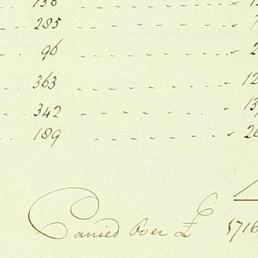 136
285 7
96 2
363 12
342 13
189 26
Carried Over £ 1716